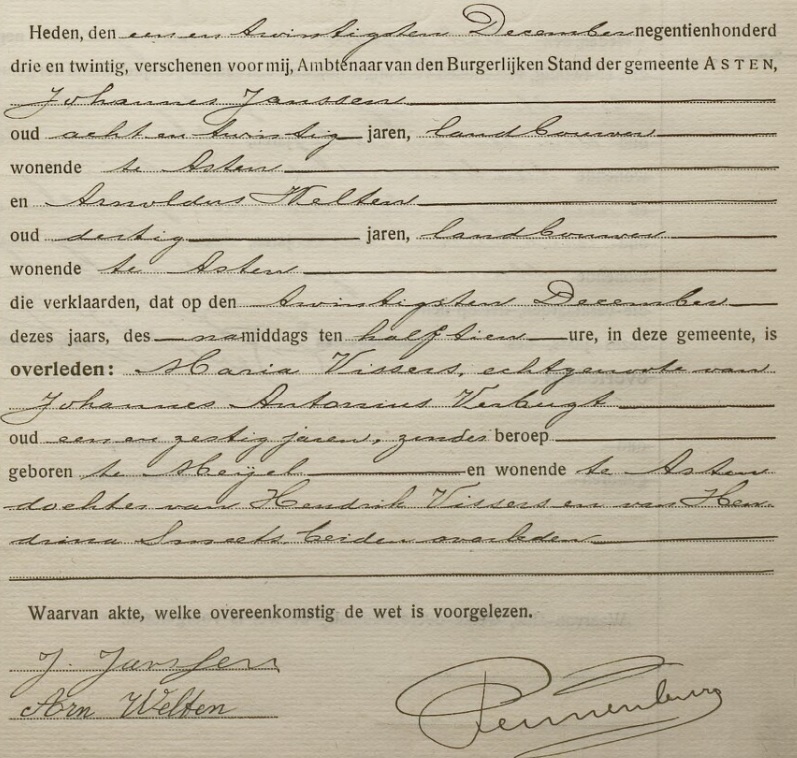 Heden, den een en twintigsten December negentienhonderd
drie en twintig, verschenen voor mij, Ambtenaar van den Burgerlijken Stand der gemeente ASTEN,
Johannes Janssen
oud acht en twintig jaren, landbouwer
wonende te Asten
en Arnoldus Welten
oud dertig jaren, landbouwer
wonende te Asten
die verklaarden, dat op den twintigsten December
dezes jaars, des namiddags ten half tien ure, in deze gemeente, is
overleden: Maria Vissers, echtgenoote van
Johannes Antonius Verbugt
oud een en zestig jaren, zonder beroep
geboren te Meijel en wonende te Asten
dochter van Hendrik Vissers en van Hen-
drina Smeets, beiden overleden
Waarvan akte, welke overeenkomstig de wet is voorgelezen.
J. Janssen
Arn Welten